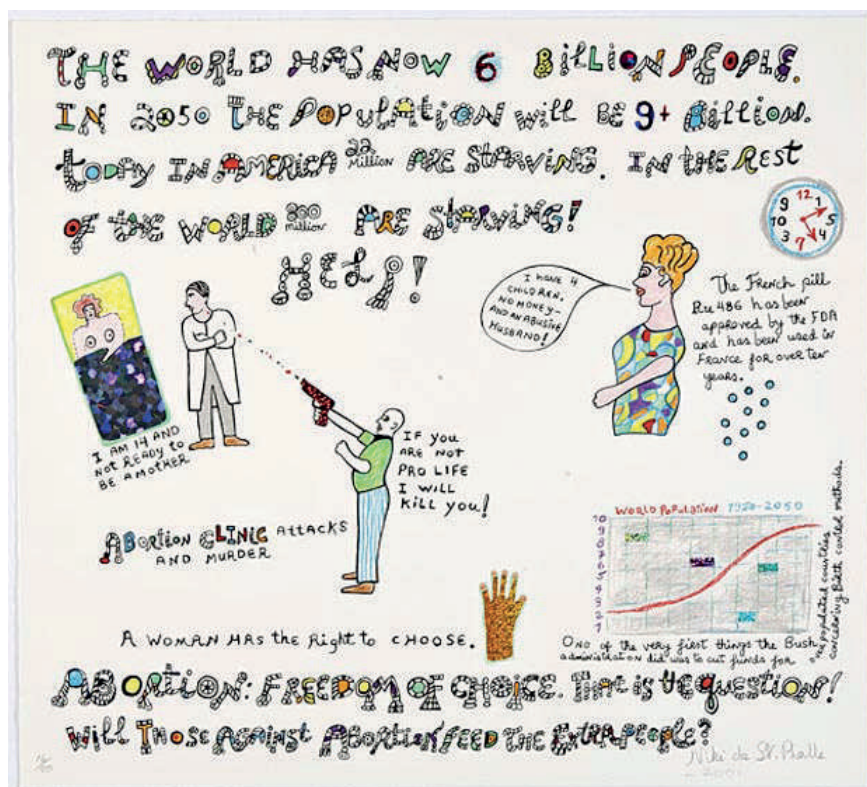 THE WORLD HAS NOW 6 BILLION PEOPLE.
IN 2050 THE POPULATION will BE 9+ Billion.
today IN AMERICA 22 Million ARE STARVING. IN the REST
OF the WORLD 800 million ARE STARVING!
HELP!
9 12 1
10 5
3 7 4
I HAVE 4
CHILDREN.
NO MONEY-
AND AN ABUSIVE
HUSBAND!
The French pill
Ru 486 has been
approved by the FDA
and has been used in
France for over ten
years.
I AM 14 AND
NOT READY to
BE A MOTHER
IF you
ARE NOT
PRO LIFE
I WILL
KILL you!
ABORTION CLINIC ATTACKS
AND MURDER
WORLD POPULATION 1920-2050
10
9
8
7
6
5
4
3
2
1
A WOMAN HAS the Right to CHOOSE.
One of the very first things the Bush
administration did was to cut funds for
overpopulated countries
concerning Birth control methods.
ABORTION: FREEDOM OF CHOICE. That is the QUESTION!
Will THOSE AGAINST ABORTION FEED THE EXTRA PEOPLE?
Niki de St. Phalle
2001